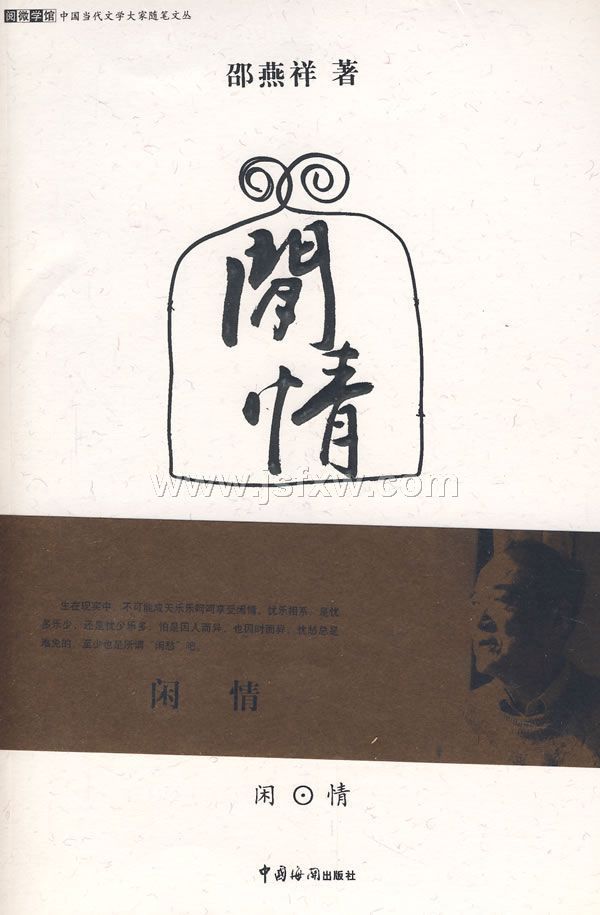 阅微学馆 中国当代文学大家随笔文丛
邵燕祥 著
閒
情
www.jsfxw.com
生在现实中，不可能成天乐乐呵呵享受闲情。忧乐相系，是忧
多乐少，还是忧少乐多，怕是因人而异，也因时而异，忧愁总是
难免的，至少也是所谓“闲愁”吧。
闲 情
闲⊙情
中国海关出版社